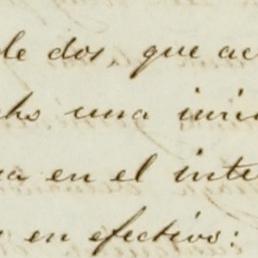 de dos, que ac
cho una inic
a en el inte
o en efectivo: